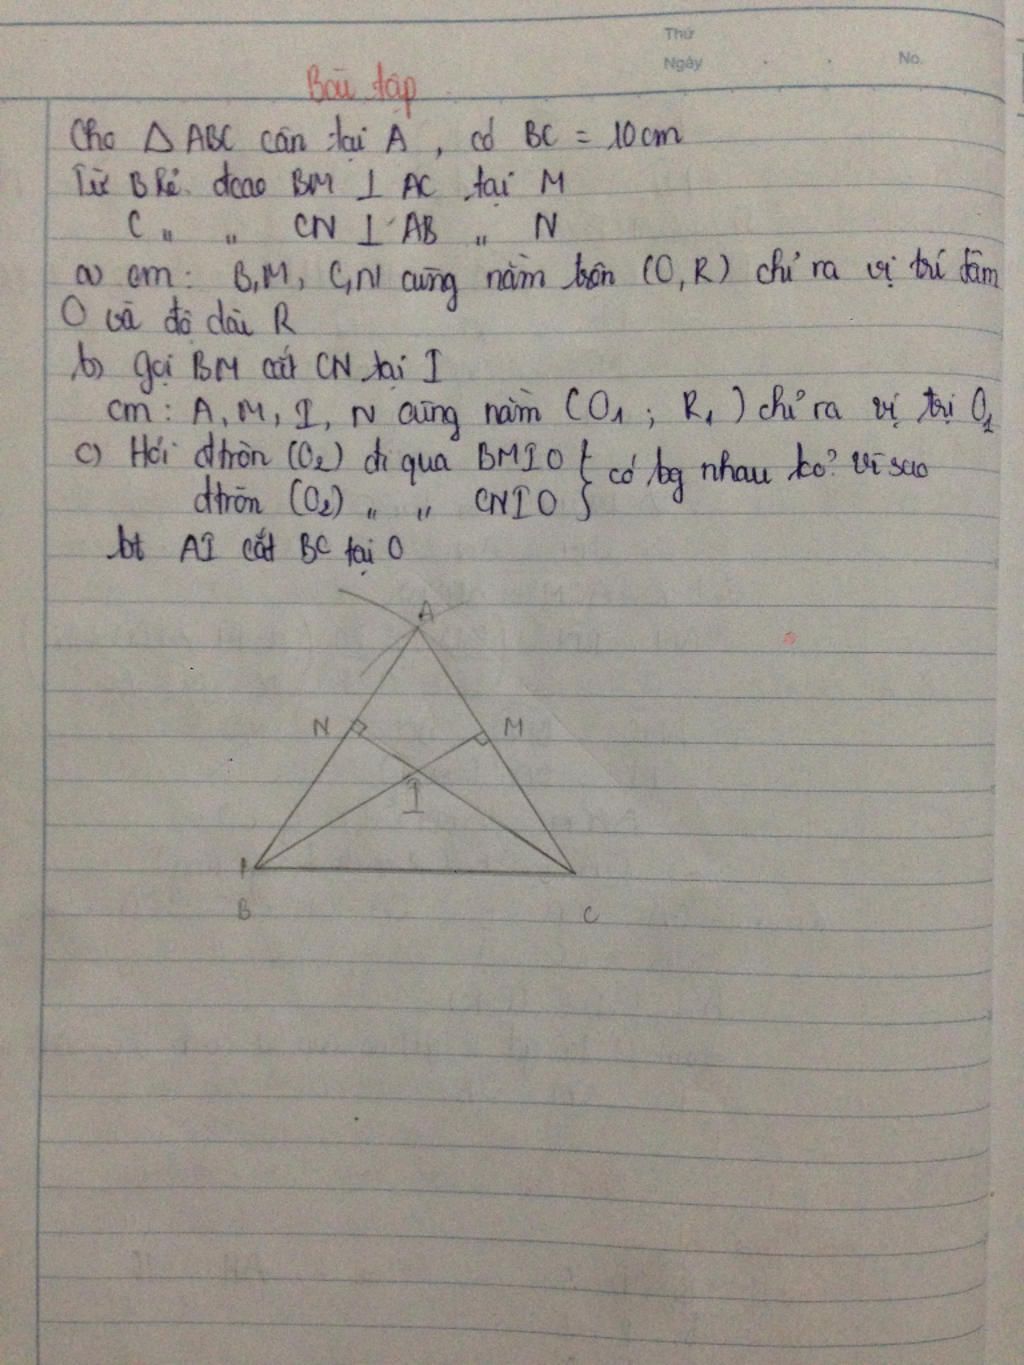 Thứ
Ngày
No.
Bài tập
Cho △ ABC cân tại A , có BC = 10cm
Từ B kẻ đcao BM ⊥ AC tại M
C " " CN ⊥ AB " N
a) cm: B,M, C,N cùng nằm trên (O,R) chỉ ra vị trí tâm
O và độ dài R
b) gọi BM cắt CN tại I
cm: A, M, I, N cùng nằm (O1 ; R1) chỉ ra vị trị O1
c) Hỏi đtròn (O2) đi qua BMIO } có bg nhau ko? vì sao
đtròn (O2) " " CNIO }
bt AI cắt BC tại O
A
N
M
I
B
C